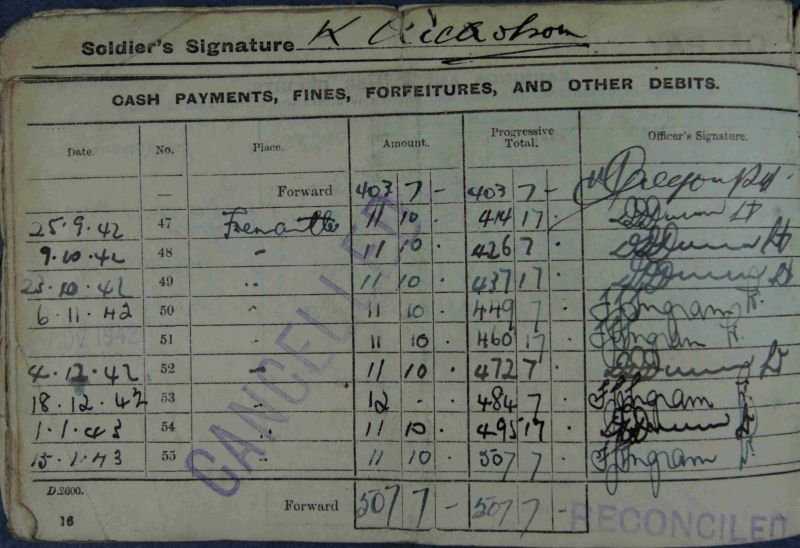 Soldier's Signature K Nicholson
CASH PAYMENTS, FINES, FORFEITURES, AND OTHER DEBITS.
Date. No. Place. Amount. Progressive Total. Officer's Signature.
— Forward 403 7 - 403 7 -
25.9.42 47 Fremantle 11 10 . 414 17 .
9.10.42 48 " 11 10 . 426 7 .
23.10.42 49 " 11 10 . 437 17 .
6.11.42 50 " 11 10 . 449 7 . Ingram Lt.
51 11 10 . 460 17 . Ingram Lt.
4.12.42 52 " 11 10 . 472 7 .
18.12.42 53 " 12 - . 484 7 . Ingram Lt.
1.1.43 54 " 11 10 . 495 17 .
15.1.43 55 " 11 10 507 7 Ingram Lt.
D.2600.
Forward 507 7 - 507 7 -
16
CANCELLED
RECONCILED